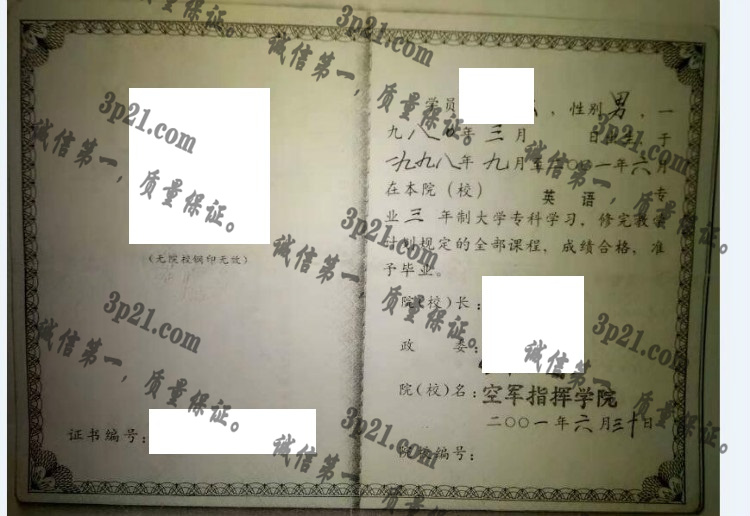 (无院校钢印无效)
证书编号:
学员
,性别男,一
九八 年三月 日生,于
一九九八年九月至二〇〇一年六月
在本院(校) 英语 专
业三年制大学专科学习,修完教学
计划规定的全部课程,成绩合格,准
予毕业。
院(校)长:
政 委:
院(校)名:空军指挥学院
二〇〇一年六月三十日
院校编号:
3p21.com
诚信第一,质量保证。
3p21.com
诚信第一,质量保证。
3p21.com
诚信第一,质量保证。
3p21.com
诚信第一,质量保证。
3p21.com
诚信第一,质量保证。
3p21.com
诚信第一,质量保证。
3p21.com
诚信第一,质量保证。